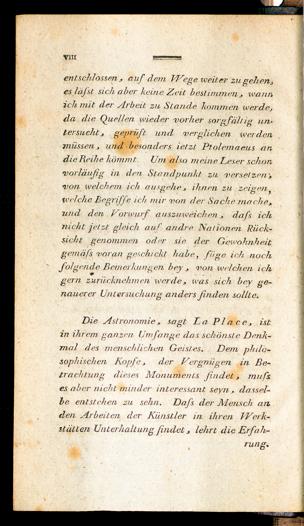 VIII
entschlossen, auf dem Wege weiter zu gehen,
es läſst sich aber keine Zeit bestimmen, wann
ich mit der Arbeit zu Stande kommen werde,
da die Quellen wieder vorher sorgfältig un-
tersucht, geprüft und verglichen werden
müssen, und besonders ietzt Ptolemaeus an
die Reihe kömmt. Um also meine Leser schon
vorläufig in den Standpunkt zu versetzen,
von welchem ich ausgehe, ihnen zu zeigen,
welche Begriffe ich mir von der Sache mache,
und den Vorwurf auszuweichen, daſs ich
nicht jetzt gleich auf andre Nationen Rück-
sicht genommen oder sie der Gewohnheit
gemäſs voran geschickt habe, füge ich noch
folgende Bemerkungen bey, von welchen ich
gern zurücknehmen werde, was sich bey ge-
nauerer Untersuchung anders finden sollte.
Die Astronomie, sagt La Place, ist
in ihrem ganzen Umfange das schönste Denk-
mal des menschlichen Geistes. Dem philo-
sophischen Kopfe, der Vergnügen in Be-
trachtung dieses Monuments findet, muſs
es aber nicht minder interessant seyn, dassel-
be entstehen zu sehn. Daſs der Mensch an
den Arbeiten der Künstler in ihren Werk-
stätten Unterhaltung findet, lehrt die Erfah-
rung.